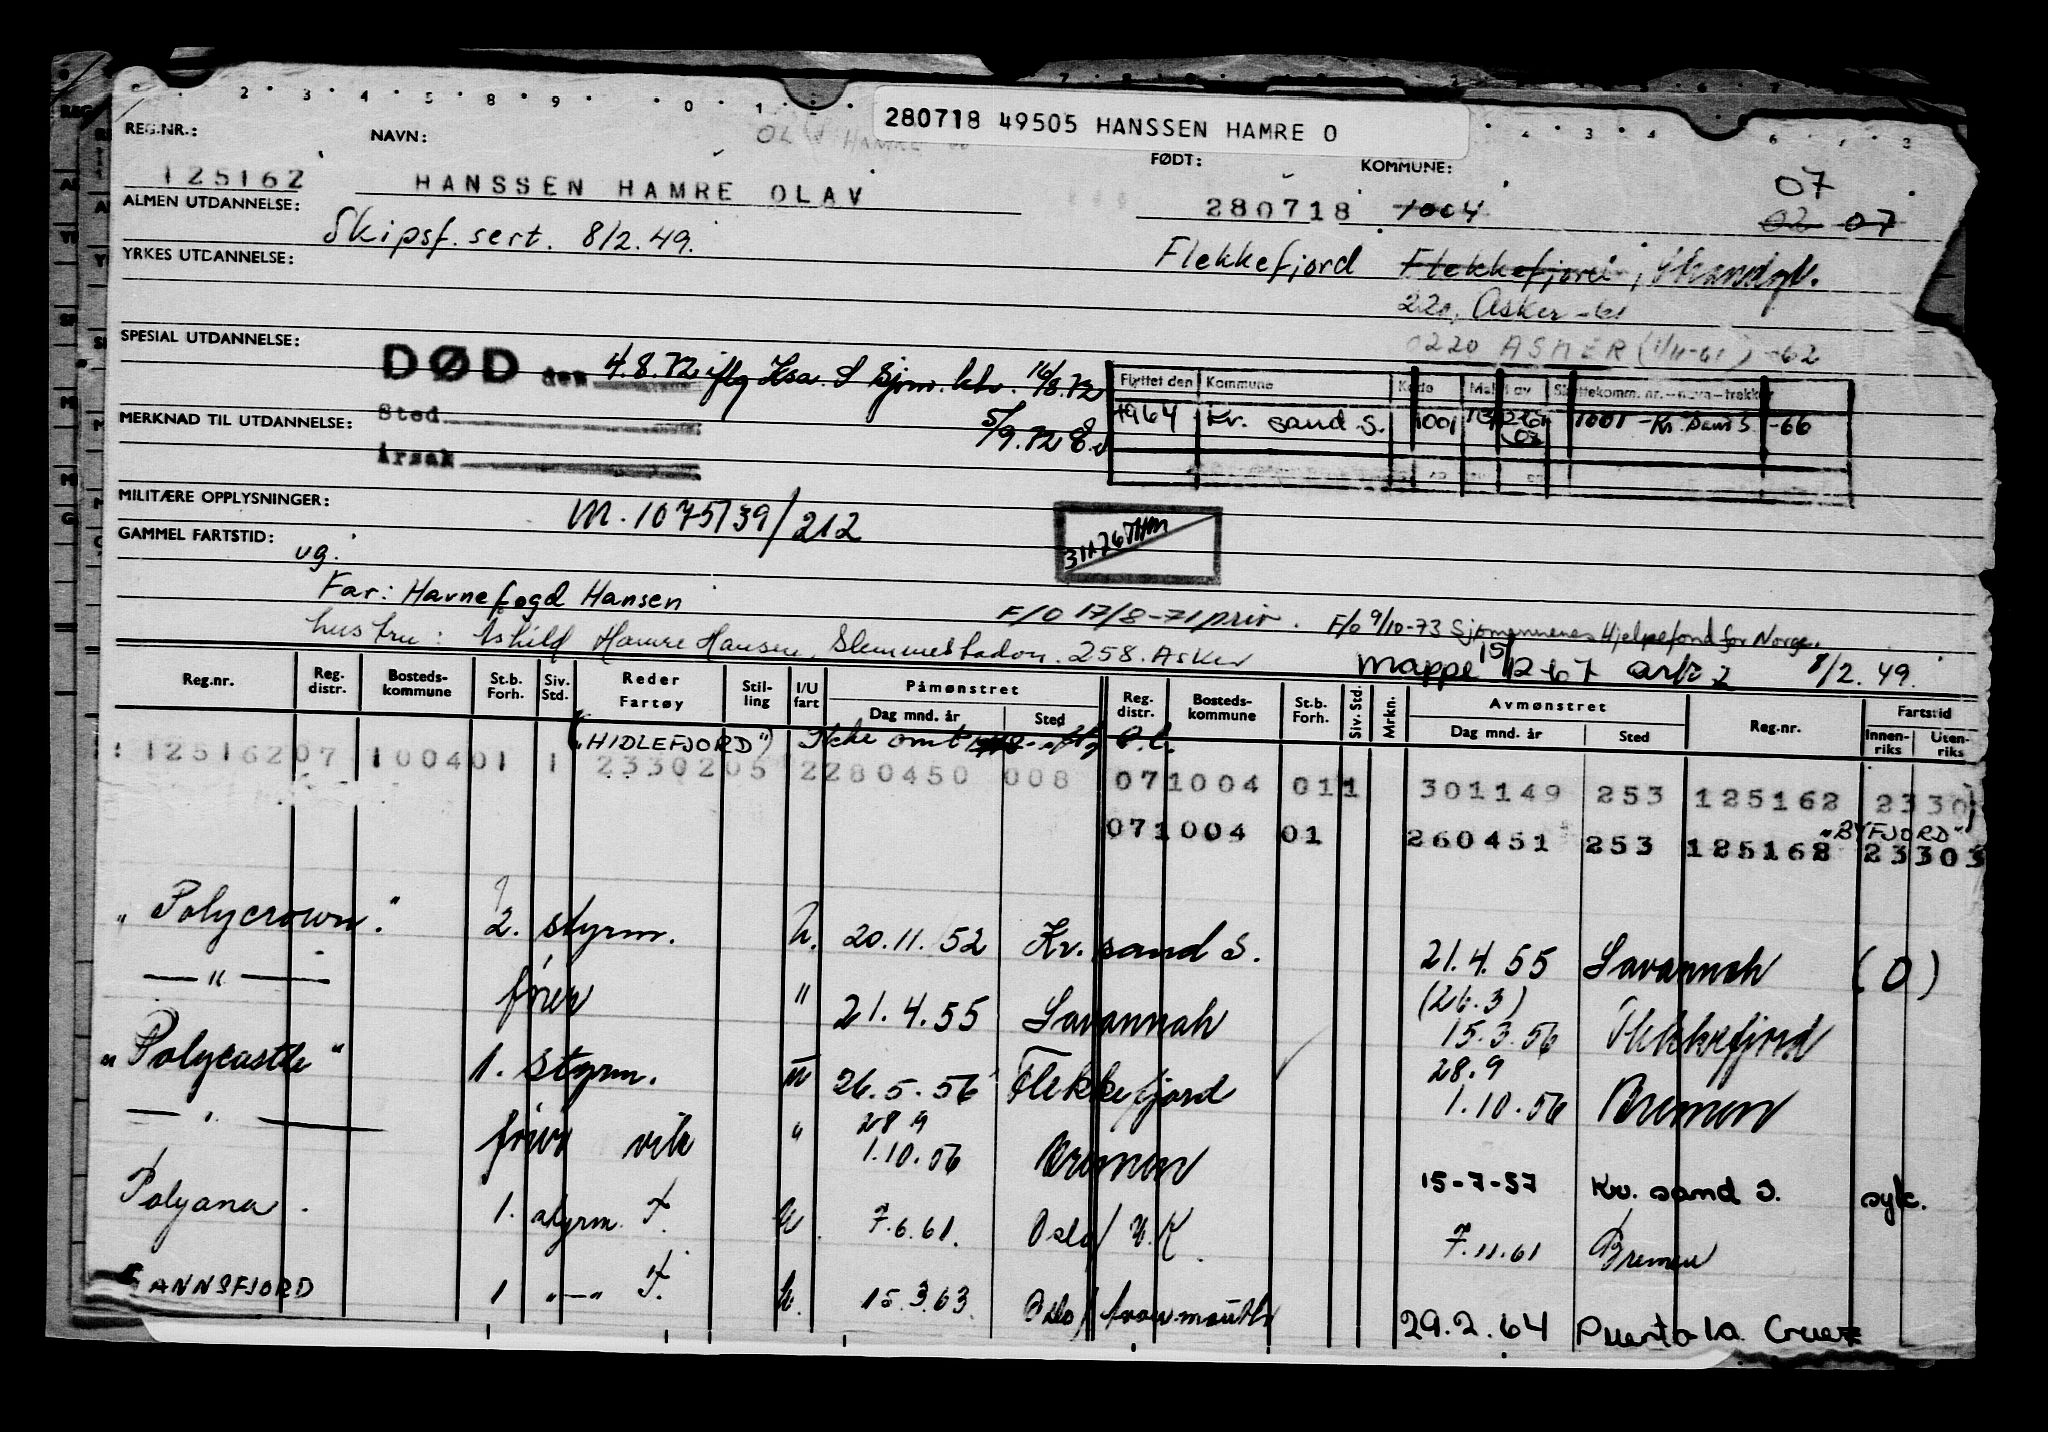 280718 49505 HANSSEN HAMRE O
REG.NR.: NAVN: FØDT: KOMMUNE:
125162 HANSSEN HAMRE OLAV 280718 1004 07
02 07
ALMEN UTDANNELSE: Skipsf. sert. 8/2.49.
Flekkefjord Flekkefjord, Strandgt.
YRKES UTDANNELSE:
220, Asker -61
0220 ASKER (1/11-61) -62
SPESIAL UTDANNELSE:
DØD den 4.8.72 iflg Ksa. S Sjm. ktr. 16/8.72
Flyttet den Kommune Kode Meld av Skattekomm. nr. - navn - trekker
Sted 5/9.72
1964 Kv. sand S. 1001 1001 - Kr. Sand S. -66
MERKNAD TIL UTDANNELSE:
Årsak
MILITÆRE OPPLYSNINGER: M. 1075/39/212
GAMMEL FARTSTID: ug.
Far: Havnefogd Hansen
F/O 17/8-71 priv. F/O 9/10-73 Sjømennenes Hjelpefond for Norge.
hustru: Åshild Hamre Hansen, Slemmestadvn. 258. Asker
Mappe 15/12-67 ark 2 8/2.49.
Reg.nr. Reg. distr. Bosteds-kommune St.b. Forh. Siv. Std. Reder Fartøy Stil-ling I/U fart Påmønstret Dag mnd. år Sted Reg. distr. Bosteds-kommune St.b. Forh. Siv. Std. Mrkn. Avmønstret Dag mnd. år Sted Reg.nr. Fartstid Innen-riks Uten-riks
("HIDLEFJORD") Ikke omt
125162 07 1004 01 1 2330205 2 280450 008 07 1004 01 1 301149 253 125162 2330
"BYFJORD"
07 1004 01 260451 253 125162 23303
"Polycrown". 2. styrm. U. 20.11.52 Kr. sand S. 21.4.55 Savannah (0)
(26.3)
— " — fører " 21.4.55 Savannah 15.3.56 Flekkefjord
"Polycastle" 1. styrm. U 26.5.56 Flekkefjord 28.9
1.10.56 Bremen
— " — fører vik " 28.9
1.10.56 Bremen 15-7-57 Kr. sand S. syk.
Polyana. 1. styrm. F. U. 7.6.61. Oslo/U.K. 7.11.61 Bremen
GANNSFJORD 1 "—" F. U. 15.3.63. Oslo/Avonmouth 29.2.64 Puerto la Cruz